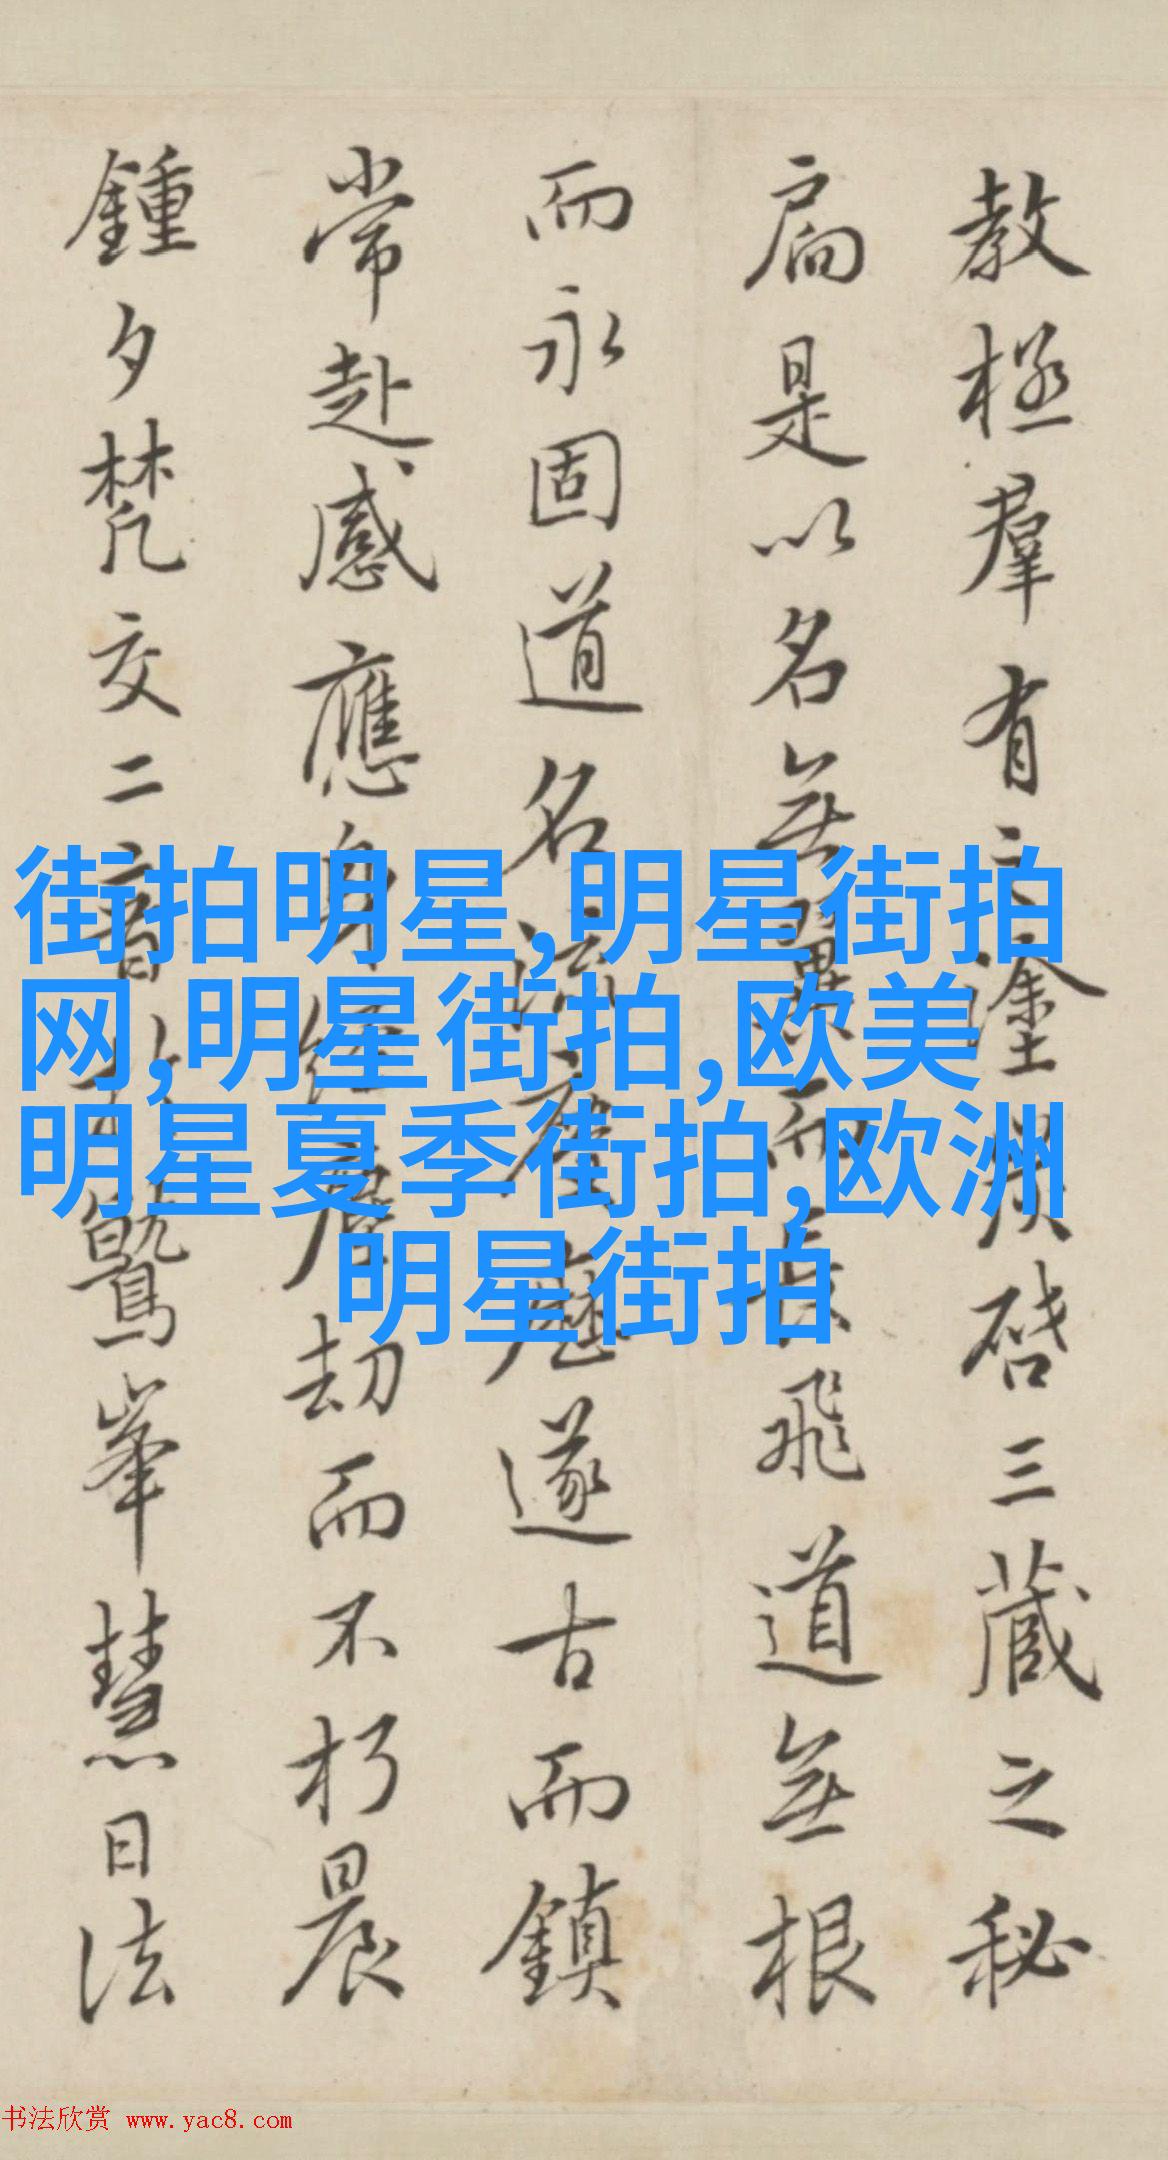 教拯羣有之塗炭啓三藏之秘
扃是以名無翼而長飛道無根
而永固道名流慶歷遂古而鎮
常赴感應身經塵劫而不朽晨
鍾夕梵交二音於鷲峯慧日法
街拍明星,明星街拍
网,明星街拍,欧美
明星夏季街拍,欧洲
明星街拍
书法欣赏 www.yac8.com